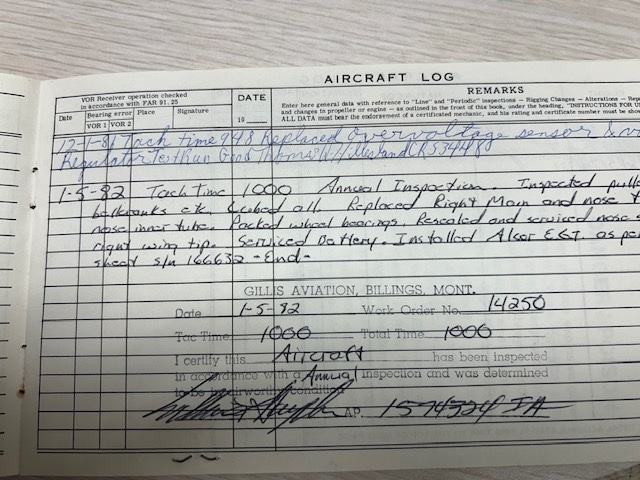 AIRCRAFT LOG
VOR Receiver operation checked
in accordance with FAR 91.25
DATE
REMARKS
Date
Bearing error
VOR 1 VOR 2
Place
Signature
19
Enter here general data with reference to "Line" and "Periodic" inspections — Rigging Changes — Alterations —
and changes in propeller or engine — as outlined in the front of this book, under the heading, "INSTRUCTIONS FOR
ALL DATA must bear the endorsement of a certificated mechanic, and his rating and certificate number must be
12-1-81 Tach time 948 Replaced Overvoltage sensor &
Regulator Test Run Good
1-5-82 Tach Time 1000 Annual Inspection. Inspected
bellcranks etc. Lubed all. Replaced Right Main and nose
nose inner tube. Packed wheel bearings. Resealed and serviced nose
right wing tip. Serviced Battery. Installed Alcor E.G.T. as
sheet s/n 166632 -End-
GILLIS AVIATION, BILLINGS, MONT.
Date 1-5-82 Work Order No. 14250
Tac Time 1000 Total Time 1000
I certify this Aircraft has been inspected
in accordance with a Annual inspection and was determined
to be in airworthy condition
AP. 1574324 IA